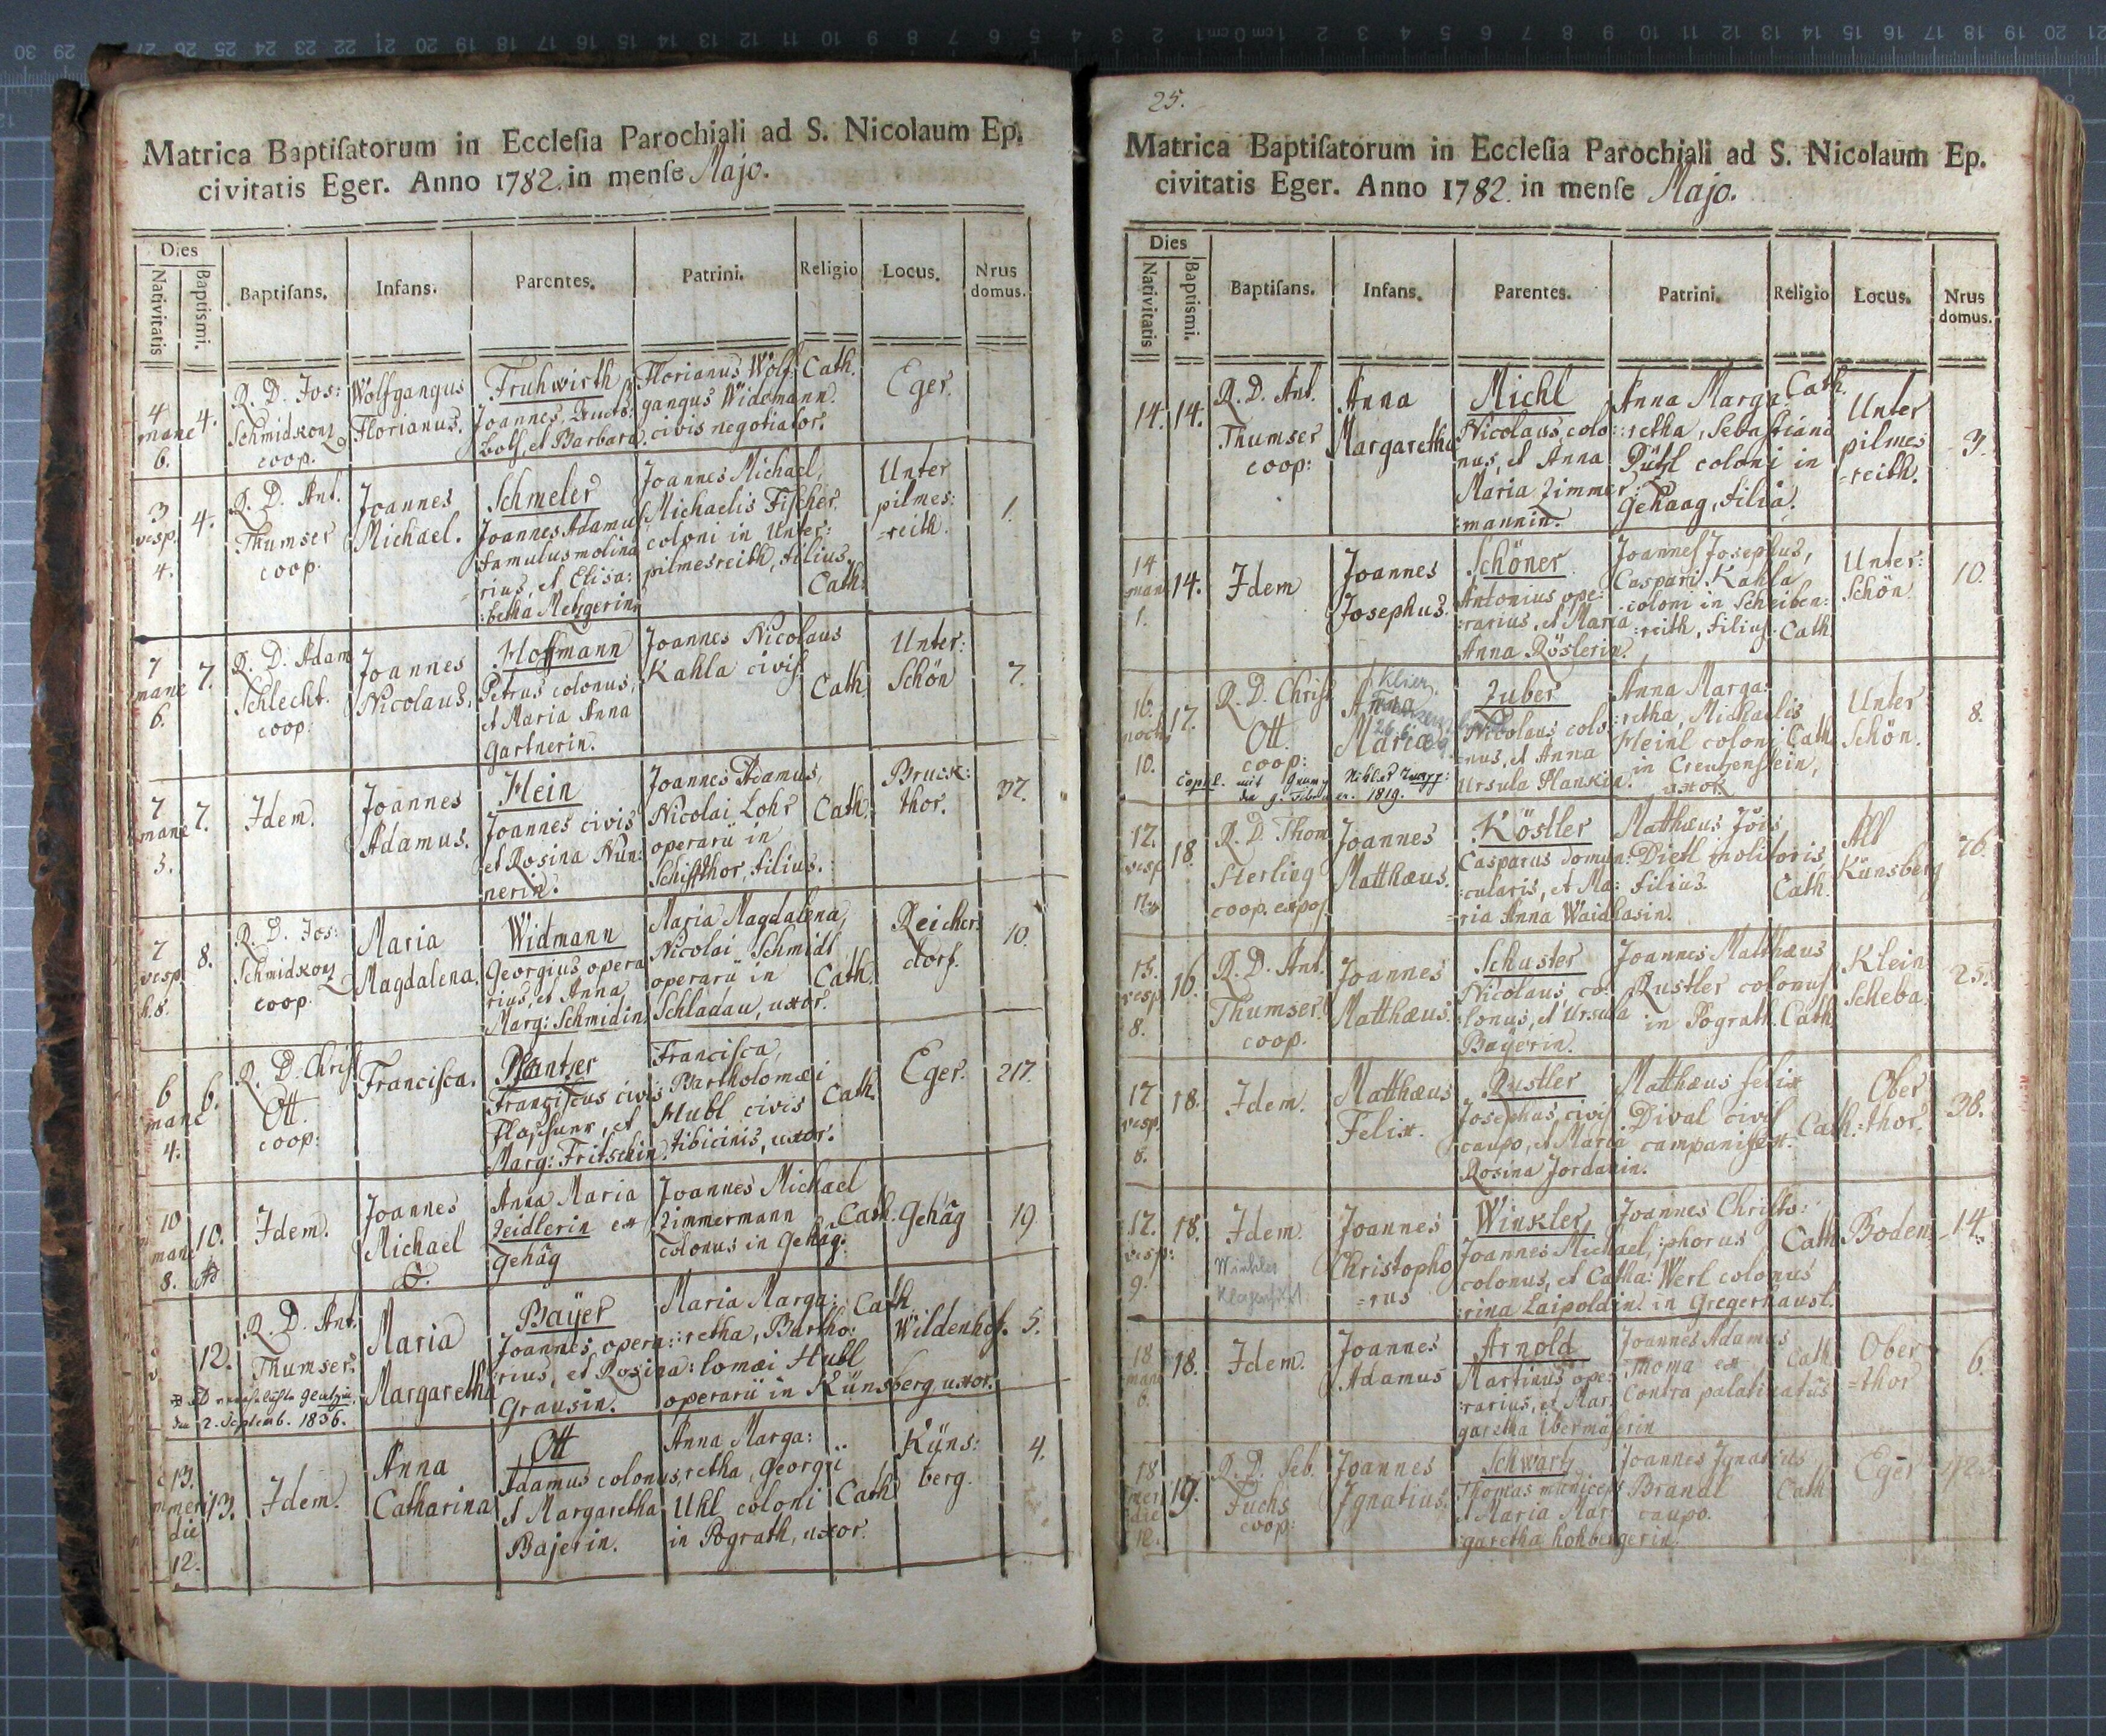 Matrica Baptiſatorum in Eccleſia Parochiali ad S. Nicolaum Ep.
civitatis Eger. Anno 1782. in menſe Majo.
Dies
Nativitatis
Baptismi.
Baptiſans.
Infans.
Parentes.
Patrini.
Religio
Locus.
Nrus
domus.
4
mane
6.
4.
R. D. Jos:
Schmidkonz
coop.
Wolfgangus
Florianus.
Fruhwirth
Joannes
et Barbara.
Florianus Wolf:
gangus Widemann
civis negotiator.
Cath.
Eger.
3
vesp.
4.
4.
R. D. Ant.
Thumser
coop.
Joannes
Michael.
Schmeler
Joannes Adamus
famulus molina
rius, et Elisa:
:betha Metzgerin.
Joannes Michael,
Michaelis Fischer
coloni in Unter:
pilmesreith, filius.
Cath.
Unter
pilmes:
=reith.
1.
7
mane
6.
7.
R. D. Adam
Schlecht.
coop:
Joannes
Nicolaus.
Hoffmann
Petrus colonus,
et Maria Anna
Gartnerin.
Joannes Nicolaus
Kahla civis
Cath.
Unter:
Schön
7.
7
mane
5.
7.
Idem.
Joannes
Adamus.
Hein
Joannes civis
et Rosina Nün:
nerin.
Joannes Adamus,
Nicolai Lohr
operarii in
Schiffthor, filius.
Cath.
Bruck:
thor.
37.
7
vesp
h.8.
8.
R. D. Jos:
Schmidkonz
coop.
Maria
Magdalena.
Widmann
Georgius opera
rius, et Anna
Marg: Schmidin.
Maria Magdalena,
Nicolai Schmidt
operarii in
Schladau, uxor.
Cath.
Reichers
dorf.
10.
6
mane
4.
6.
R. D. Christ
Ott.
coop:
Franciſca.
Plantzer
Franciſcus civis
Flaschner, et
Marg: Fritschin.
Franciſca,
Bartholomæi
Hubl civis
tibicinis, uxor.
Cath.
Eger.
217.
10
mane
8.
10.
Idem.
Joannes
Michael
Anna Maria
Zeidlerin ex
Gehäg
Joannes Michael
Zimmermann
colonus in Gehäg.
Cath.
Gehäg
19
12.
R. D. Ant.
Thumser.
den 2. Septemb. 1836.
Maria
Margaretha
Baÿer
Joannes opera:
rius, et Rosina
Grausin.
Maria Marga:
:retha, Bartho:
:lomæi Hubl
operarii in Künsberg uxor.
Cath
Wildenhof.
5.
13.
meri
die
12.
13.
Idem.
Anna
Catharina
Ott
Adamus colonus,
et Margaretha
Bajerin.
Anna Marga:
retha, Georgii
Uhl coloni
in Pograth, uxor.
Cath
Küns:
berg.
4.
25.
Matrica Baptiſatorum in Eccleſia Parochiali ad S. Nicolaum Ep.
civitatis Eger. Anno 1782. in menſe Majo.
Dies
Nativitatis
Baptismi.
Baptiſans.
Infans.
Parentes.
Patrini.
Religio
Locus.
Nrus
domus.
14.
14.
R. D. Ant.
Thumser
coop:
Anna
Margaretha
Michl
Nicolaus, colo:
nus, et Anna
Maria Zimmer
:mannin.
Anna Marga
:retha, Sebastiani
coloni in
Gehaag, filia.
Cath.
Unter
pilmes
=reith.
3.
14
mane
1.
14.
Idem
Joannes
Josephus.
Schöner
Antonius ope:
:rarius, et Maria
Anna Röslerin.
Joannes Josephus,
Caspari Kahla
coloni in Scheiben:
:reith, filius. Cath
Unter:
Schön
10.
16.
noct.
10.
17.
R. D. Christ
Ott.
coop:
Klier
Anna
Maria
Zuber
Nicolaus colo:
:nus, et Anna
Ursula Plankin.
Anna Marga:
:retha, Michaelis
Heinl coloni
in Creutzenstein,
uxor
Cath
Unter
Schön.
8.
Copul. mit
den 9. 1819.
17.
vesp
18.
R. D. Thom
Sterling
coop. expos.
Joannes
Matthæus.
Köstler
Casparus domun:
:cularis, et Ma:
=ria Anna Waidhasin.
Matthæus Jois
Dietl institoris,
filius.
Cath.
Alt
Künsberg
26.
15.
vesp
8.
16.
R. D. Ant.
Thumser.
coop.
Joannes
Matthæus.
Schuster
Nicolaus, co:
:lonus, et Ursula
Baÿerin.
Joannes Matthæus
Rustler colonus
in Pograth. Cath
Klein
Scheba.
25.
17
vesp
8.
18.
Idem.
Matthæus
Felix.
Rustler
Josephus civis
caupo, et Maria
Rosina Jordanin.
Matthæus Felix
Dival civis
campanifex.
Cath.
Ober
=thor.
38.
17.
vesp:
9.
18.
Idem.
Winkler
Joannes
Christopho
=rus
Winkler
Joannes Michael,
colonus, et Catha:
:rina Laipoldin.
Joannes Christo:
:phorus
Werl colonus
in Gregerhausl.
Cath
Boden
14.
18
mane
6.
18.
Idem.
Joannes
Adamus
Arnold
Martinus ope:
:rarius, et Mar:
garetha Übermäserin
Joannes Adamus
Thoma ex
Contra palatinatus
Cath.
Ober
=thor
6.
18
meri
die
12.
19.
R. D. Seb.
Fuchs
coop:
Joannes
Ignatius.
Schwartz
Thomas municeps
et Maria Mar:
:garetha hohbergerin.
Joannes Ignatius
Brandl
caupo.
Cath
Eger